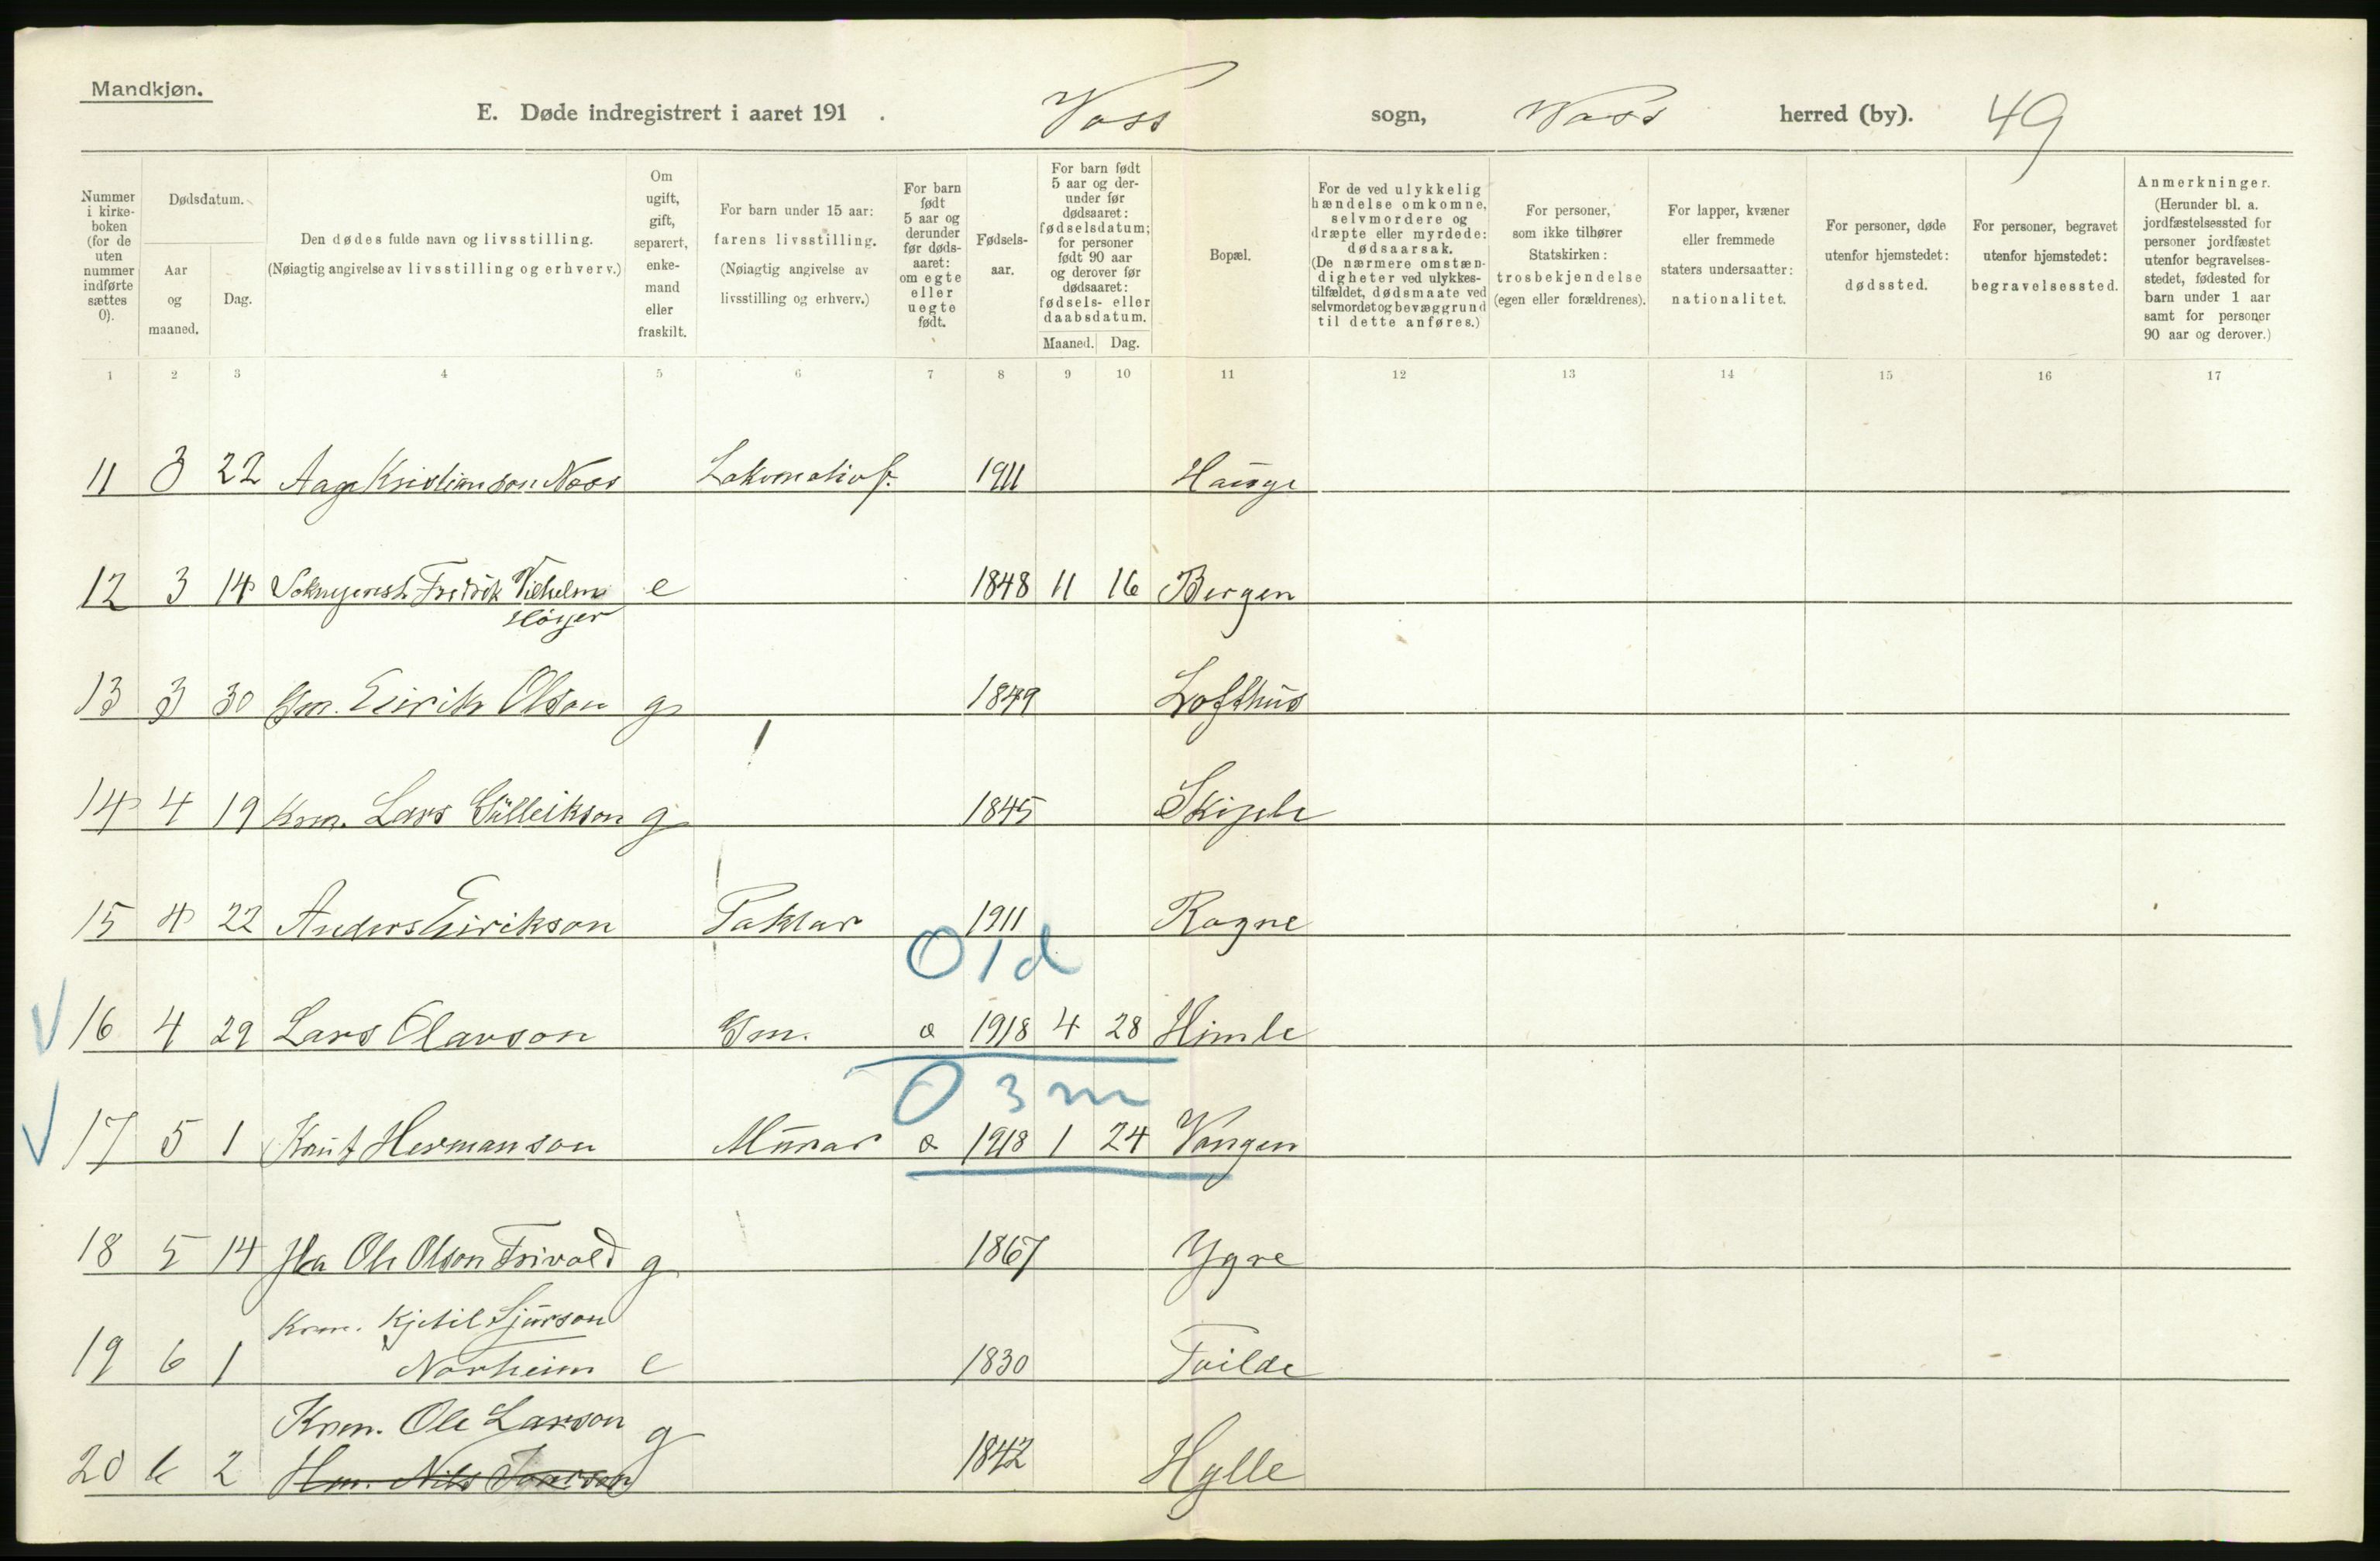 Mandkjøn.
E. Døde indregistrert i aaret 191 . Voss sogn, Voss herred (by). 49
Nummer i kirke-boken (for de uten nummer indførte sættes 0).
Dødsdatum.
Aar og maaned.
Dag.
Den dødes fulde navn og livsstilling.
(Nøiagtig angivelse av livsstilling og erhverv.)
Om ugift, gift, separert, enke-mand eller fraskilt.
For barn under 15 aar: farens livsstilling.
(Nøiagtig angivelse av livsstilling og erhverv.)
For barn født 5 aar og derunder før døds-aaret: om egte eller uegte født.
Fødsels-aar.
For barn født 5 aar og der-under før dødsaaret: fødselsdatum; for personer født 90 aar og derover før dødsaaret: fødsels- eller daabsdatum.
Maaned. Dag.
Bopæl.
For de ved ulykkelig hændelse omkomne, selvmordere og dræpte eller myrdede: dødsaarsak.
(De nærmere omstæn-digheter ved ulykkes-tilfældet, dødsmaate ved selvmordet og bevæggrund til dette anføres.)
For personer, som ikke tilhører Statskirken: trosbekjendelse (egen eller forældrenes).
For lapper, kvæner eller fremmede staters undersaatter: nationalitet.
For personer, døde utenfor hjemstedet: dødssted.
For personer, begravet utenfor hjemstedet: begravelsessted.
Anmerkninger.
(Herunder bl. a. jordfæstelsessted for personer jordfæstet utenfor begravelses-stedet, fødested for barn under 1 aar samt for personer 90 aar og derover.)
1 2 3 4 5 6 7 8 9 10 11 12 13 14 15 16 17
11 3 22 Aage Kristianson Noss Lokomotivf. 1911 Hauge
12 3 14 Fredrik Vilhelm e 1848 11 16 Bergen
Høyer
13 3 30 Gm. Eirik Olson g 1849 Lofthus
14 4 19 Krm. Lars Gulleikson g 1845 Skiple
15 4 22 Anders Eirikson Taktar 1911 Rogne
0 1 d
16 4 29 Lars Olavson Gm. e 1918 4 28 Himle
0 3 m
17 5 1 Knut Hermanson Murar e 1918 1 24 Vangen
18 5 14 Ole Olson Trivold g 1867 Ygre
Krm. Kjetil Sjurson
19 6 1 Norheim e 1830 Tvilde
Krm. Ole Larson g
20 6 2 Hm. Nils 1842 Hylle